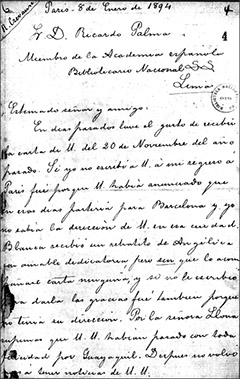 Paris - 8 de Enero de 1894
4
4
S. D. Ricardo Palma
Miembro de la Academia española
Bibliotecario Nacional
Lima
Estimado señor y amigo.
En dias pasados tuve el gusto de recibir
la carta de U. del 20 de Noviembre del año
pasado. Si yo no escribí á U. á mi regreso a
Paris fué porque U. había anunciado que
en esos dias partiría para Barcelona y, yo
no sabía la dirección de U. en esa ciudad.
Blanca recibió un retratito de Angélica
con amable dedicatoria pero sin que lo acom
pañase carta ninguna, y si no le escribió
para darla las gracias fué tambien porque
no tenia su direccion. Por la señora Llona
supimos que U. U. habian pasado con toda
felicidad por Guayaquil. Despues no volvi
á tener noticias de U. U.